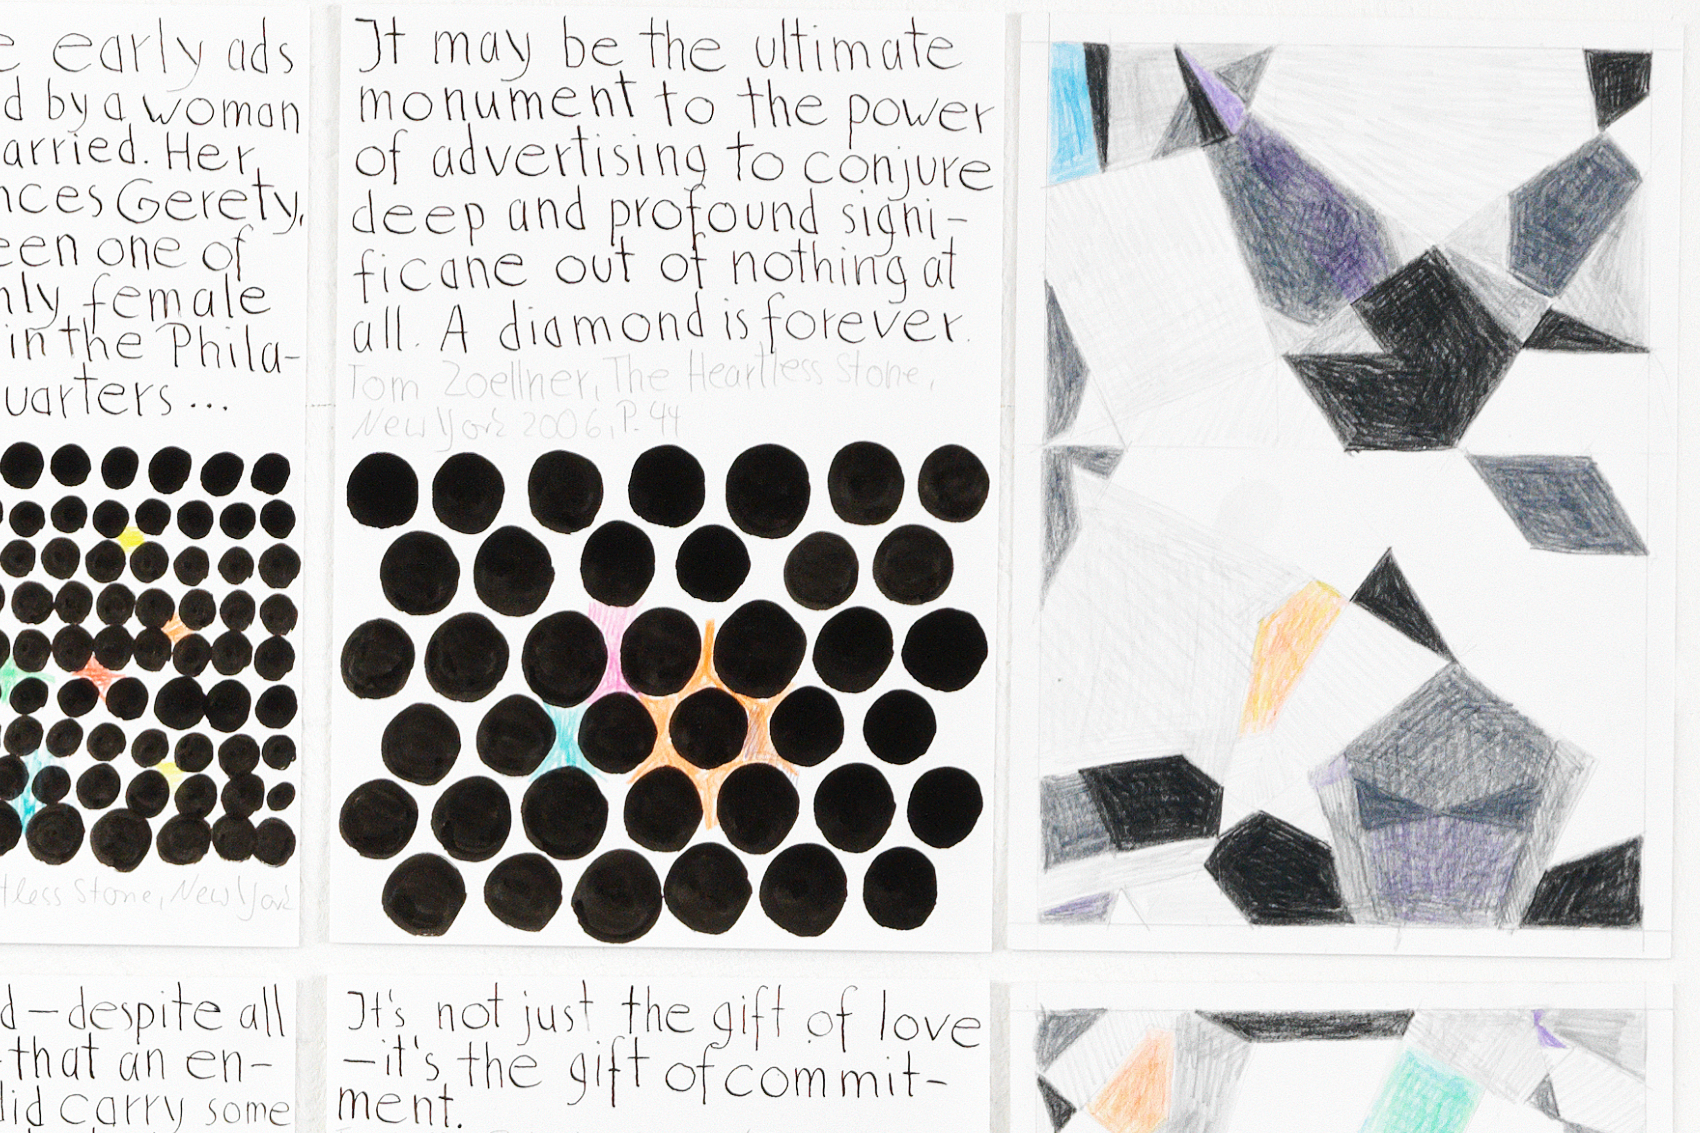 e early ads
d by a woman
arried. Her
nces Gerety,
een one of
nly female
in the Phila-
uarters...
tless Stone, New York
It may be the ultimate
monument to the power
of advertising to conjure
deep and profound signi-
ficane out of nothing at
all. A diamond is forever.
Tom Zoellner, The Heartless Stone,
New York 2006, P. 44
d—despite all
that an en-
did carry some
It's not just the gift of love
—it's the gift of commit-
ment.